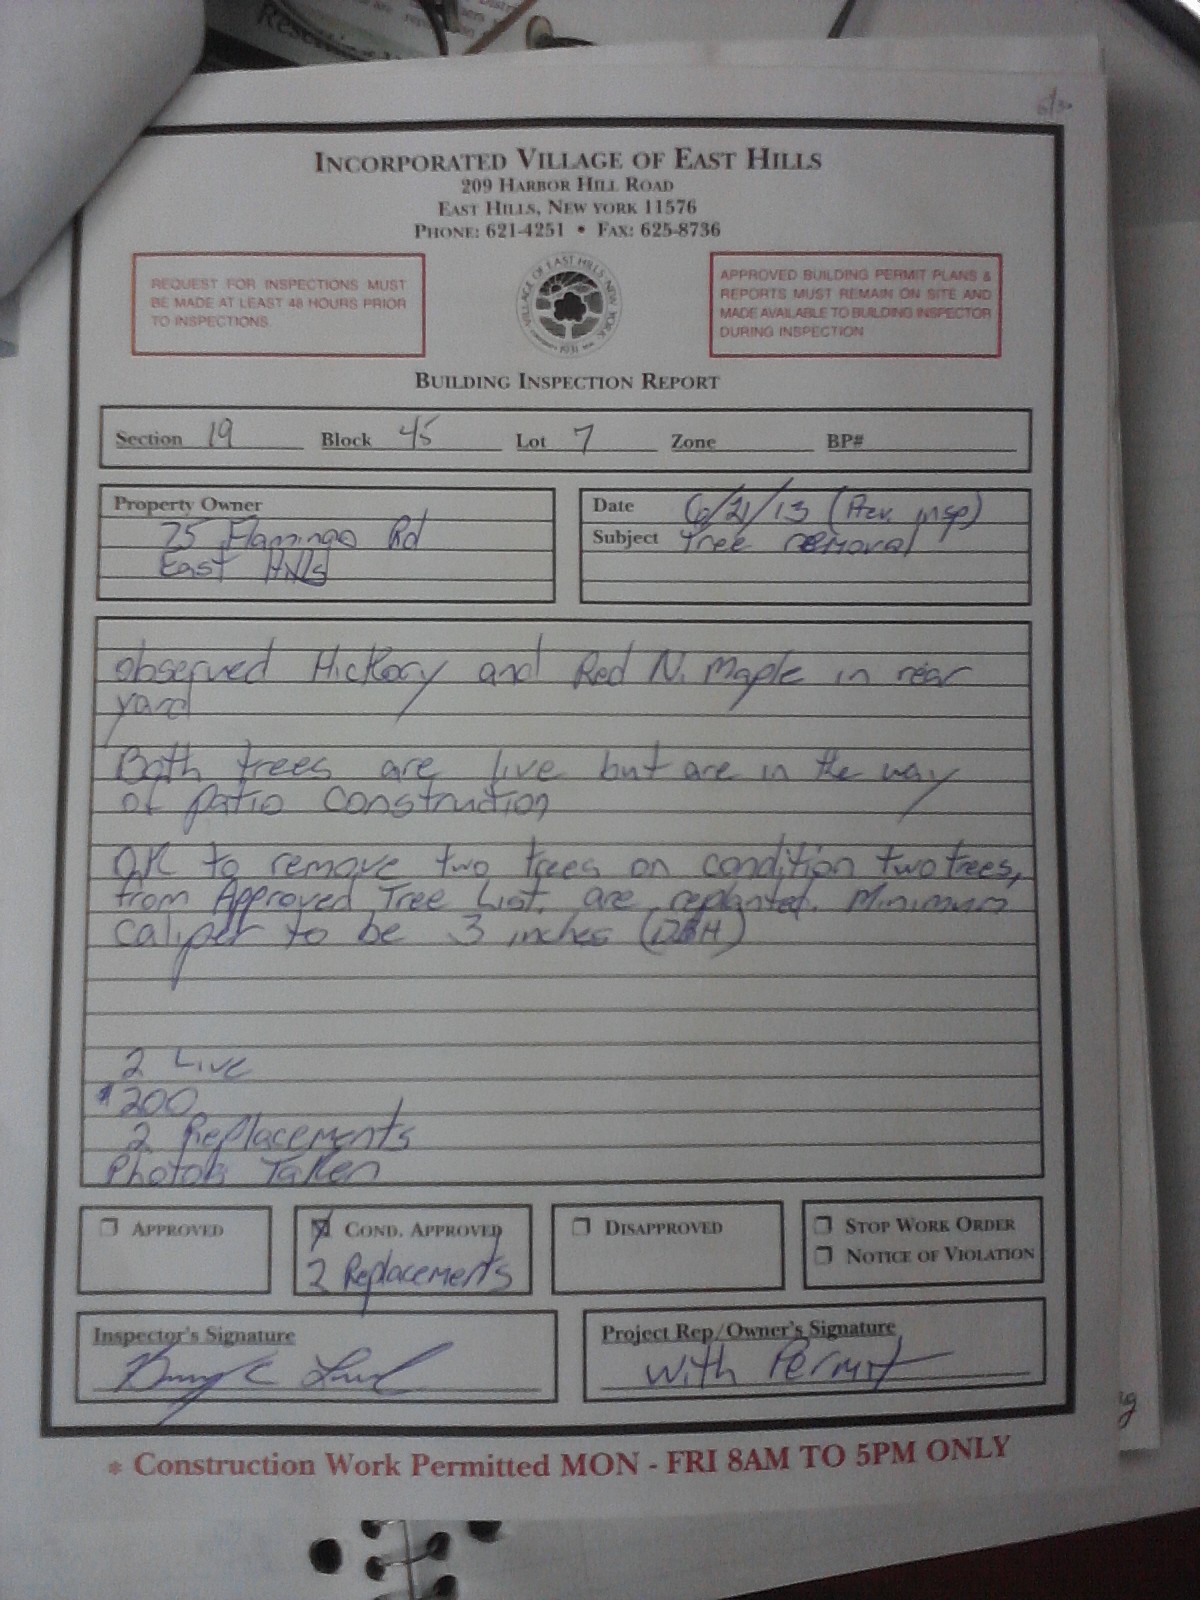 INCORPORATED VILLAGE OF EAST HILLS
209 HARBOR HILL ROAD
EAST HILLS, NEW YORK 11576
PHONE: 621-4251 • FAX: 625-8736
REQUEST FOR INSPECTIONS MUST
BE MADE AT LEAST 48 HOURS PRIOR
TO INSPECTIONS.
VILLAGE OF EAST HILLS NEW YORK
1931
APPROVED BUILDING PERMIT PLANS &
REPORTS MUST REMAIN ON SITE AND
MADE AVAILABLE TO BUILDING INSPECTOR
DURING INSPECTION
BUILDING INSPECTION REPORT
Section 19 Block 45 Lot 7 Zone BP#
Property Owner
75 Flamingo Rd
East Hills
Date 6/21/13 (Prev. insp)
Subject Tree removal
observed Hickory and Red N. Maple in rear
yard
Both trees are live but are in the way
of patio construction
OK to remove two trees on condition two trees,
from Approved Tree List, are replanted. Minimum
caliper to be 3 inches (DBH)
2 Live
$200
2 Replacements
Photos Taken
APPROVED
COND. APPROVED
2 Replacements
DISAPPROVED
STOP WORK ORDER
NOTICE OF VIOLATION
Inspector's Signature
Project Rep/Owner's Signature
with Permit
* Construction Work Permitted MON - FRI 8AM TO 5PM ONLY